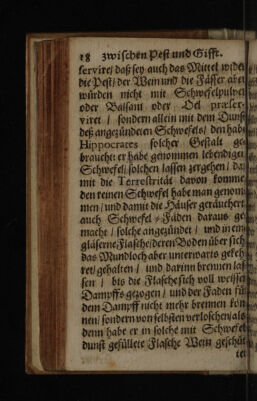 18 zwischen Pest und Gifft.
servire/ daß sey auch das Mittel wider
die Pest/ der Wein und die Fässer aber
würden nicht mit Schwefelpulver
oder Balsam oder Oel præser-
viret/ sondern allein mit dem Dunst
deß angezündeten Schwefels/ den habe
Hippocrates solcher Gestalt ge-
braucht: er habe genommen lebendigen
Schwefel/ solchen lassen zergehen/ da-
mit die Terrestrität davon komme/
den reinen Schwefel habe man genom-
men/ und damit die Häuser geräuchert/
auch Schwefel-Fäden daraus ge-
macht/ solche angezündet/ und in ein
gläserne Flasche/ deren Boden über sich
das Mundloch aber unterwarts gekeh-
ret/ gehalten/ und darinn brennen las-
sen/ bis die Flasche sich voll weissen
Dampffs gezogen/ und der Faden für
dem Dampff nicht mehr brennen kön-
nen/ sondern von selbsten verloschen/ als-
denn habe er in solche mit Schwefel-
dunst gefüllete Flasche Wein geschüt-
tet